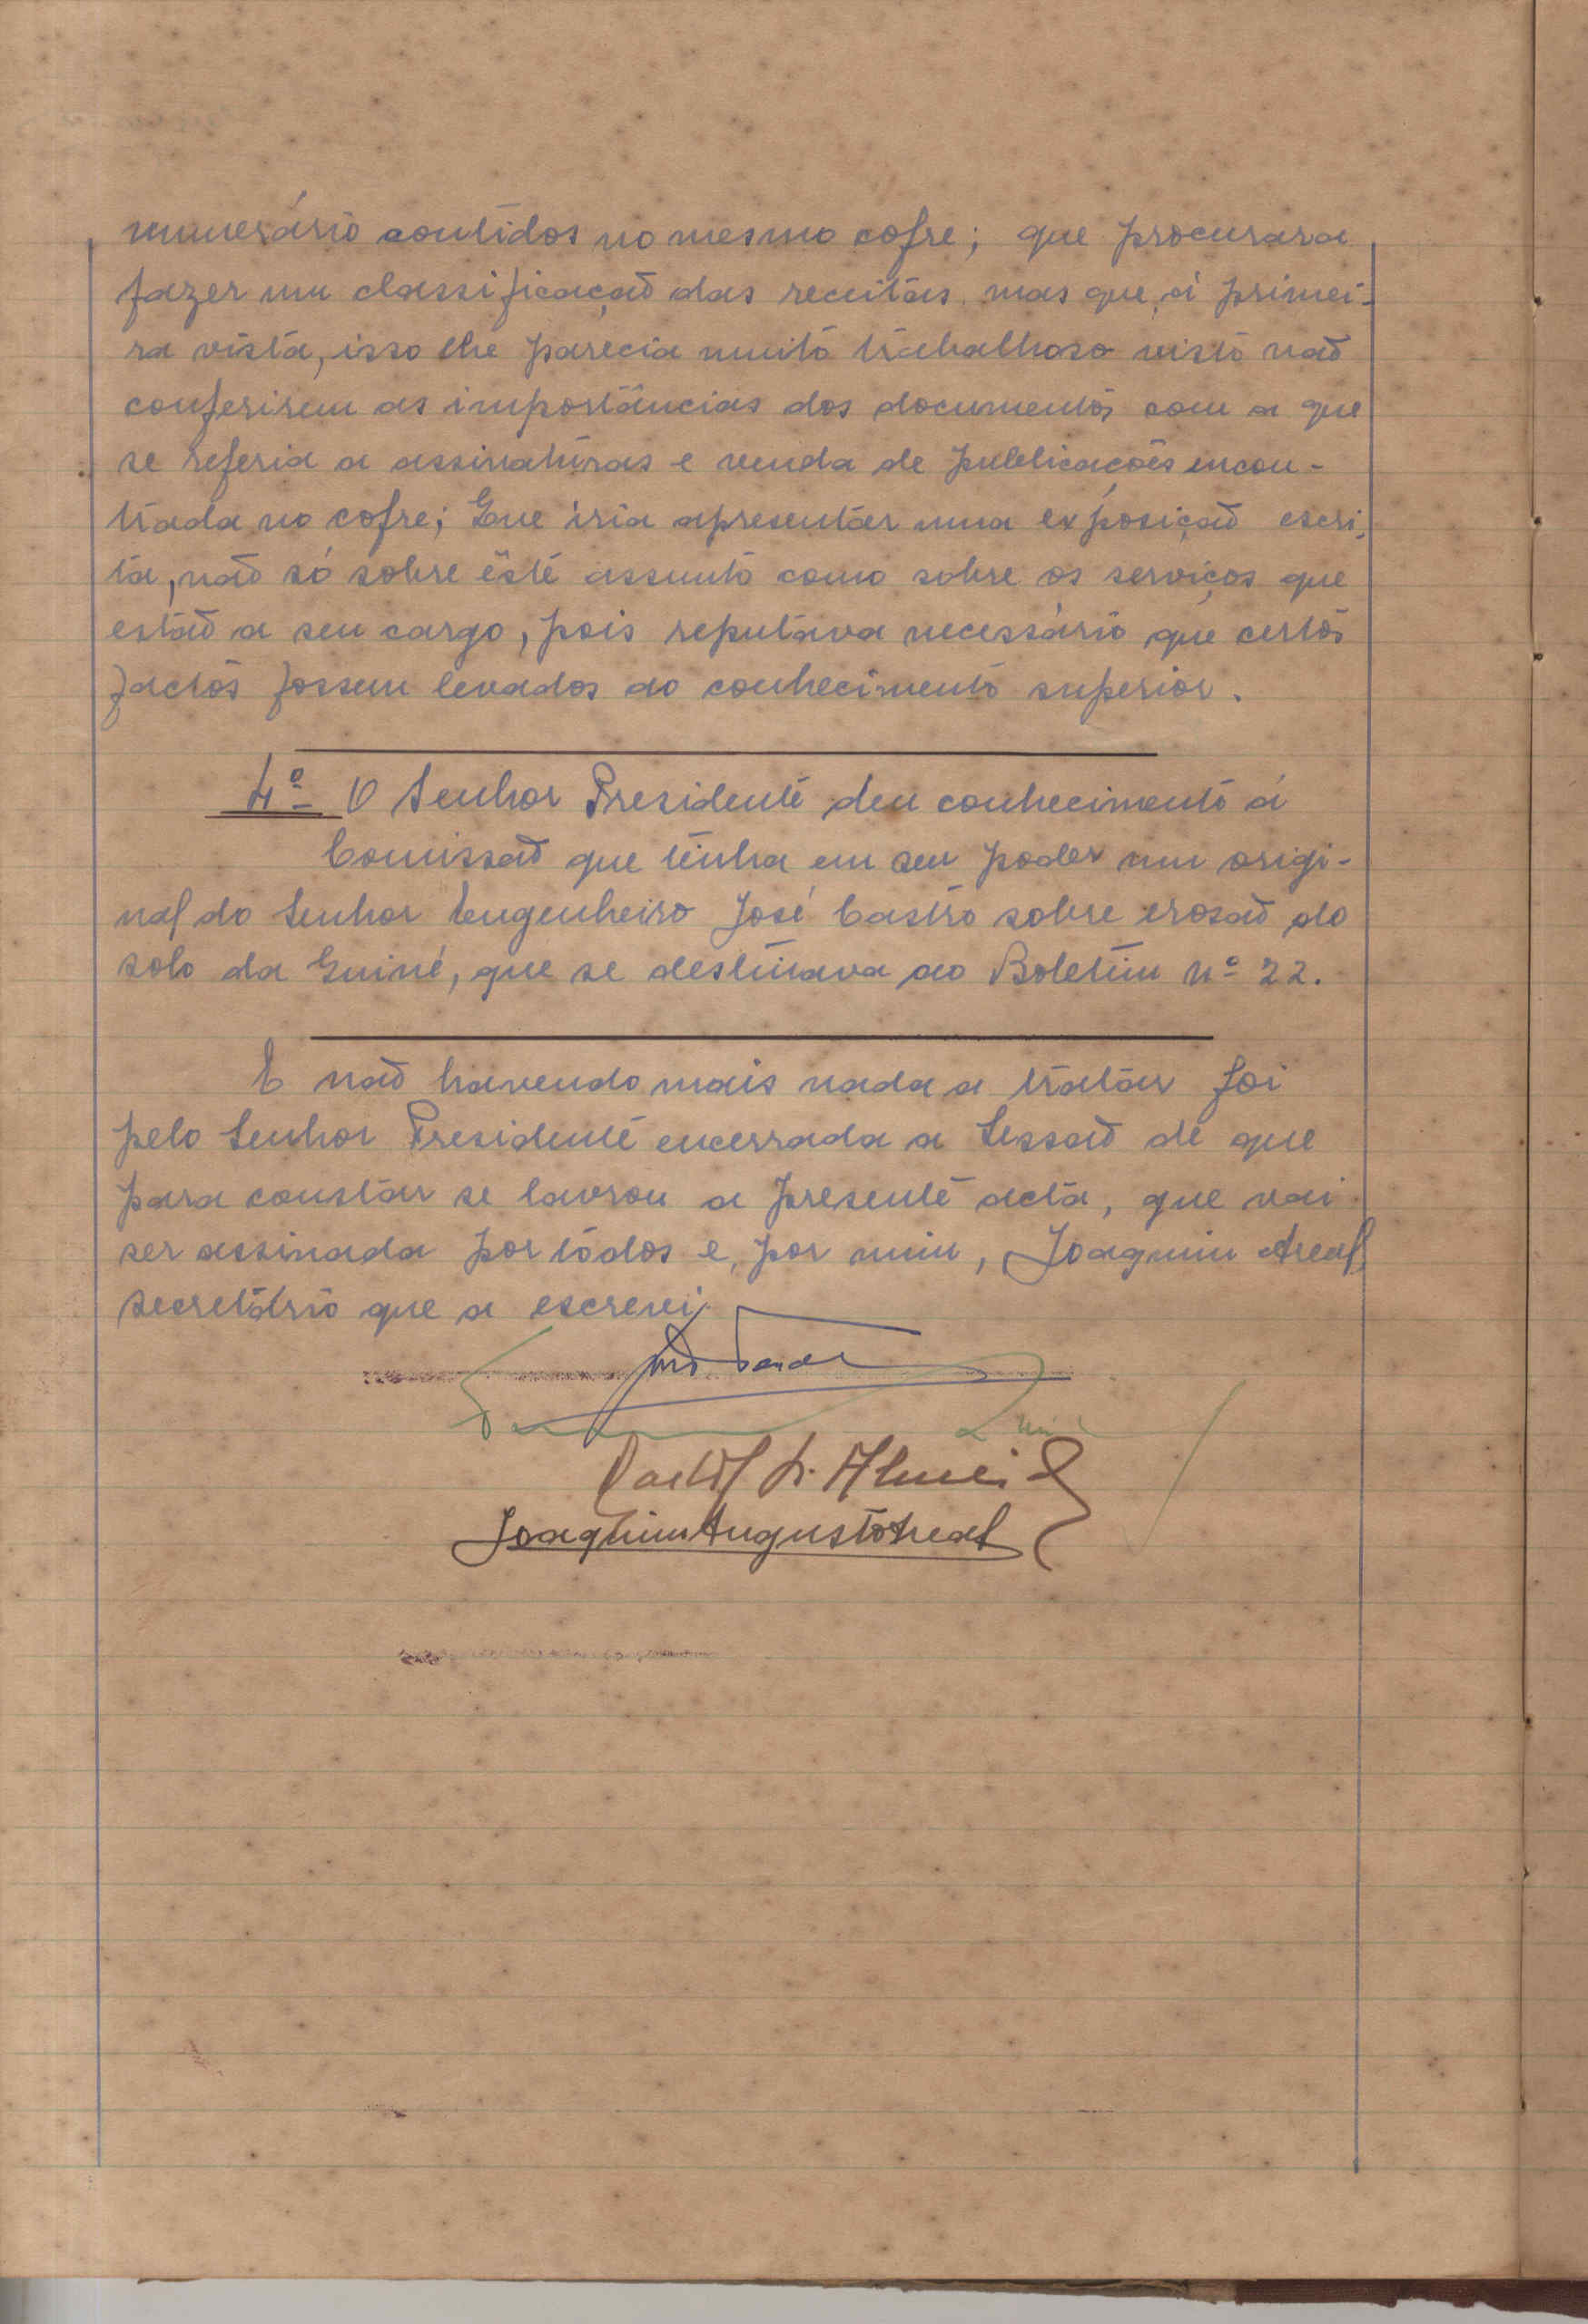 numerário contidos no mesmo cofre; que procurara
fazer um classificação das receitas mas que, á primei-
ra vista, isso lhe parecia muito trabalhoso visto não
conferirem as importâncias dos documentos com a que
se referia a assinaturas e venda de publicações encon-
trada no cofre; Que iria apresentar uma exposição escri-
ta, não só sobre êste assunto como sobre os serviços que
estão a seu cargo, pois reputava necessário que certos
factos fossem levados ao conhecimento superior.
4º O Senhor Presidente deu conhecimento á
Comissão que tinha em seu poder um origi-
nal do Senhor Engenheiro José Castro sobre erosão do
solo da Guiné, que se destinava ao Boletim nº 22.
E não havendo mais nada a tratar foi
pelo Senhor Presidente encerrada a Sessão de que
para constar se lavrou a presente acta, que vai
ser assinada por tôdos e, por mim, Joaquim Areal,
secretário que a escrevi.
Almeida
Joaquim Augusto Areal